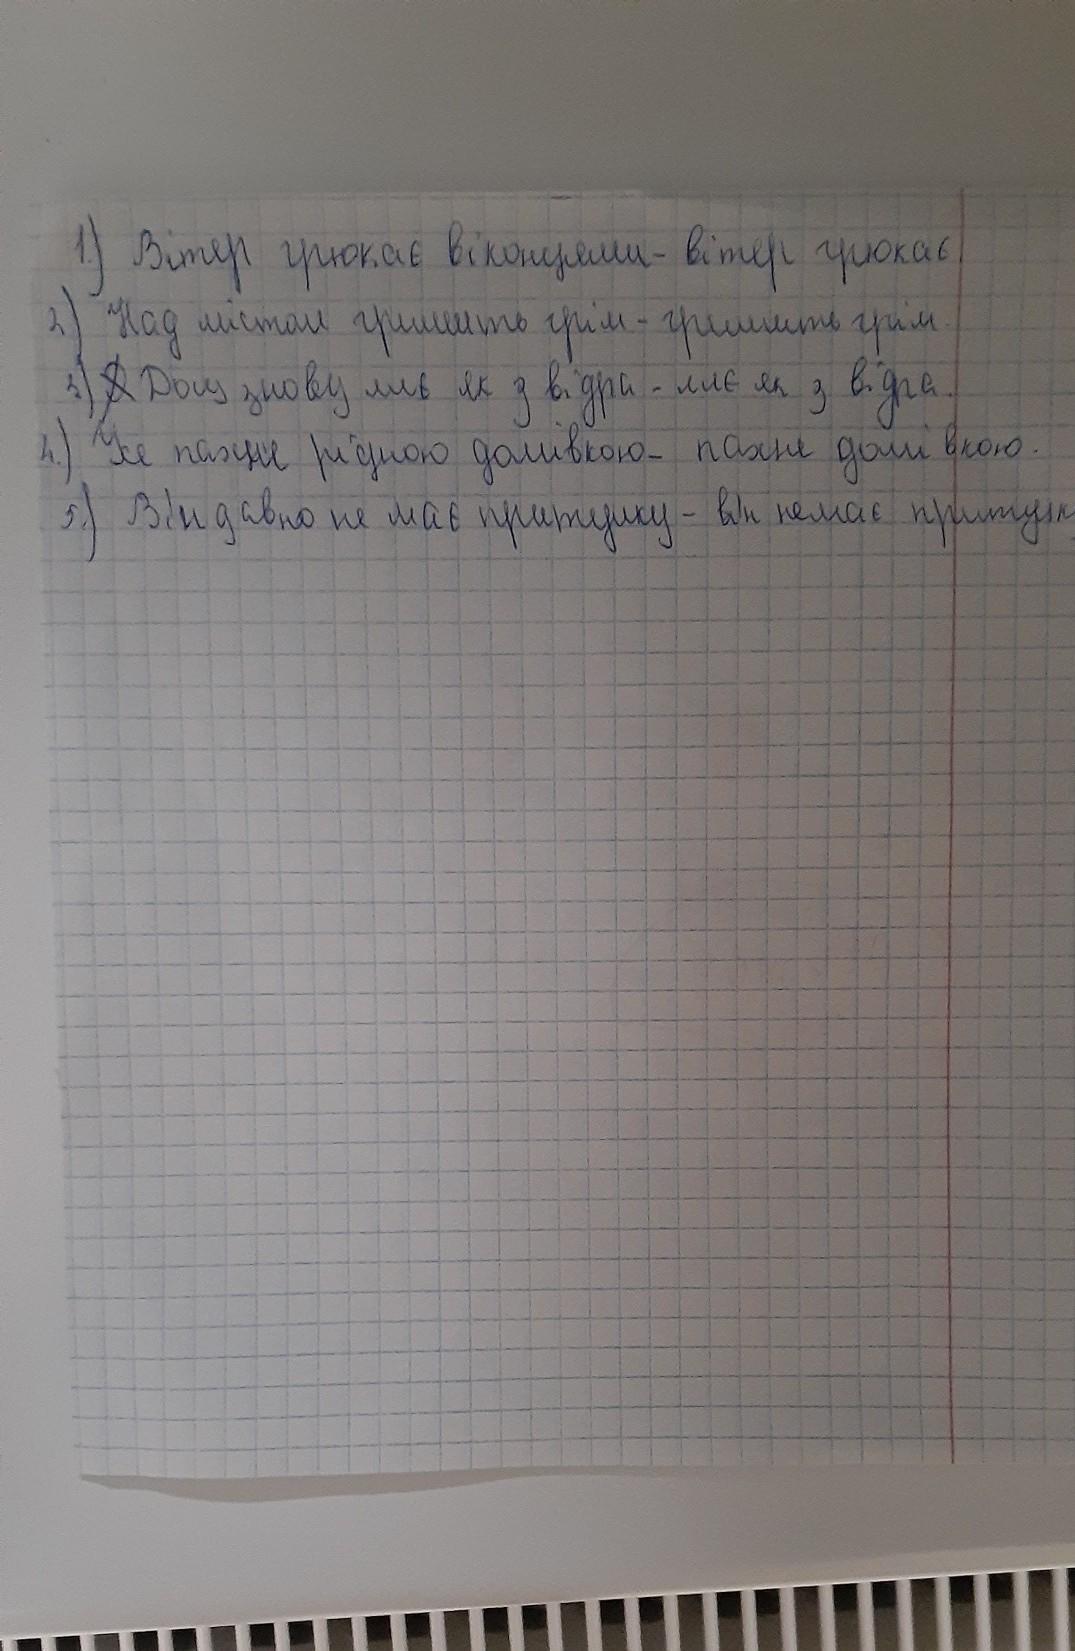 1.) Вітер грюкає віконцями - вітер грюкає
2.) Над містом гримить грім - гримить грім.
3.) Дощ знову лиє як з відра - лиє як з відра.
4.) Уже пахне рідною домівкою - пахне домівкою.
5.) Він давно не має притулку - він немає притулку